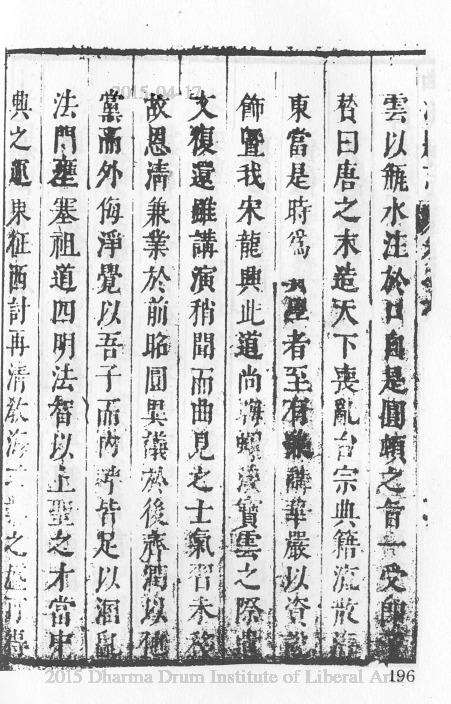 雲以瓶水注於口自是圓頓之旨一受即
曰唐之末造天下喪亂台宗典籍流散海
東當是時為 學者至有兼講華嚴以資說
飾暨我宋龍興此道尚晦螺溪寶雲之際遺
文復還雖講演稍聞而曲見之士氣習未移
故恩清兼業於前昭圓異議於後齊潤以他
黨而外侮淨覺以吾子而內畔皆足以溷亂
法門壅塞祖道四明法智以上聖之才當中
興之運東征西討再清教海 之盛可
2015-04-17
2015 Dharma Drum Institute of Liberal Arts
196